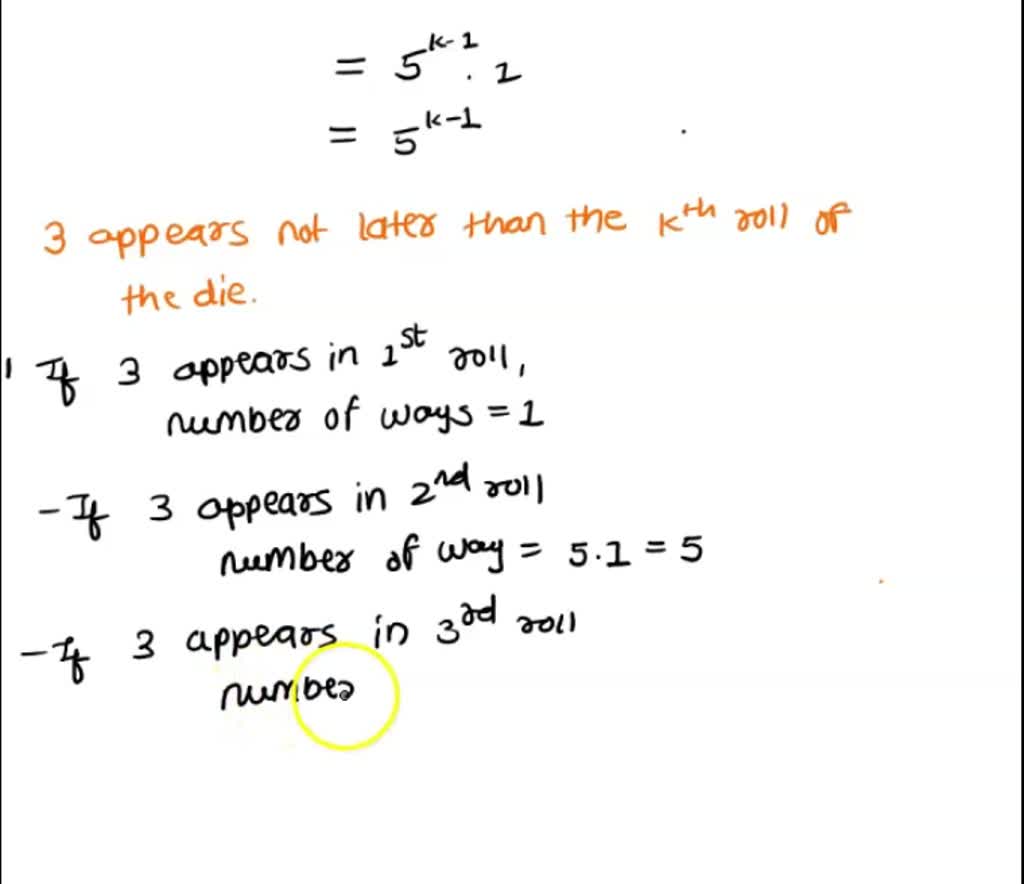 = 5^{k-1} . 1
= 5^{k-1}
3 appears not later than the k^{th} roll of
the die.
' If 3 appears in 1^{st} roll,
number of ways = 1
- If 3 appears in 2^{nd} roll
number of way = 5.1 = 5
- If 3 appears in 3^{rd} roll
number